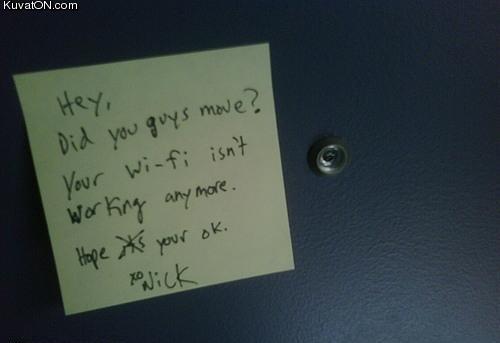 KuvatON.com
Hey,
Did you guys move?
Your wi-fi isn't
working anymore.
Hope your ok.
xo Nick